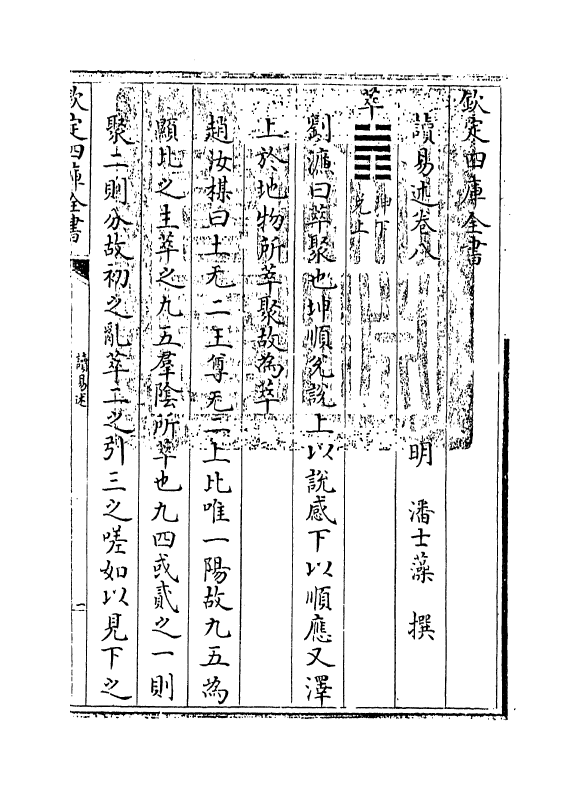 欽定四庫全書
讀易述卷八
明 潘士藻 撰
萃 坤下兌上
劉濂曰萃聚也坤順兌說上以說感下以順應又澤
上於地物所萃聚故為萃
趙汝楳曰土无二王尊无二上比唯一陽故九五為
顯比之主萃之九五羣陰所萃也九四或貳之一則
聚二則分故初之亂萃二之引三之嗟如以見下之
欽定四庫全書
讀易述
一